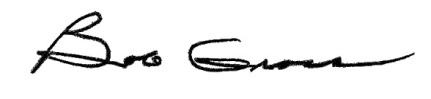 Bob Gross